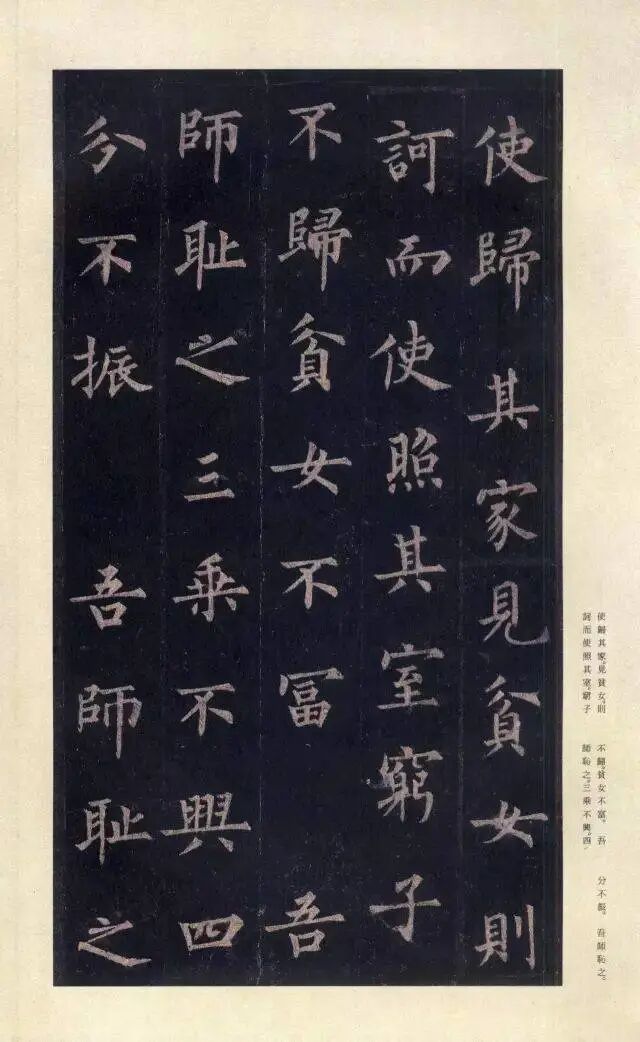 使歸其家見貧女則
訶而使照其室窮子
不歸貧女不冨 吾
師耻之三乘不興四
分不振 吾師耻之
使歸其家。見貧女。則
訶而使照其室。窮子
不歸。貧女不富。吾
師恥之。三乘不興。四
分不振。吾師恥之。